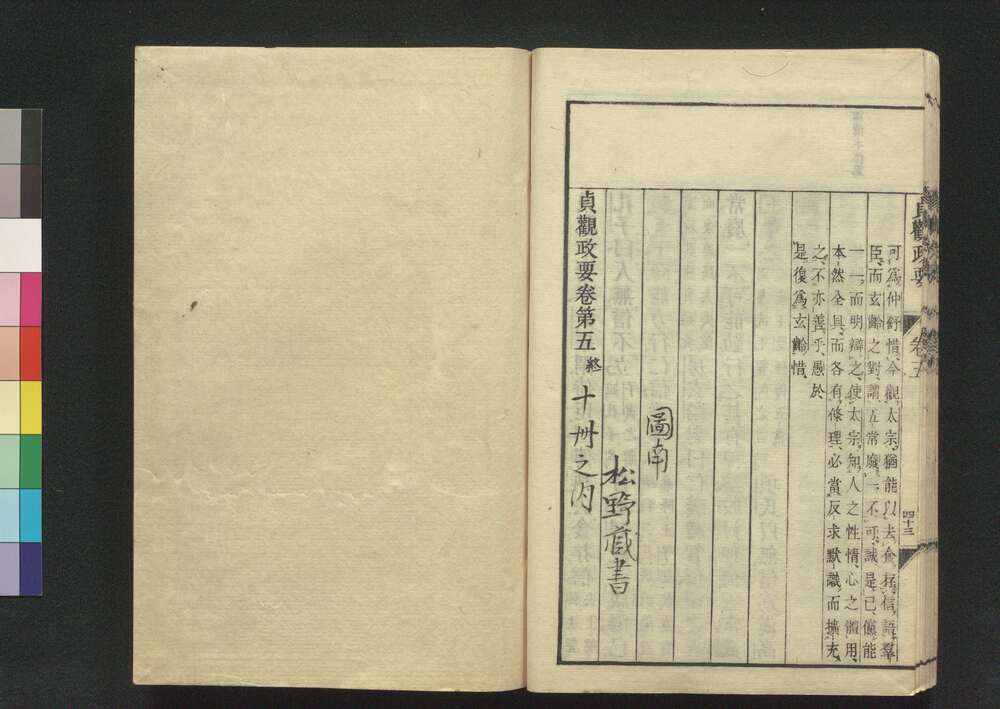 貞觀政要 卷五 四十三
可爲仲舒惜、今觀太宗、猶能以去食存信、語羣
臣、而玄齡之對、謂五常廢一不可、誠是已、儻能
一一而明辯之、使太宗知人之性情、心之體用、
本然全具、而各有條理、必當反求默識、而擴充
之、不亦善乎、愚於
是復爲玄齡惜、
圖南
松野藏書
貞觀政要卷第五終
十册之内